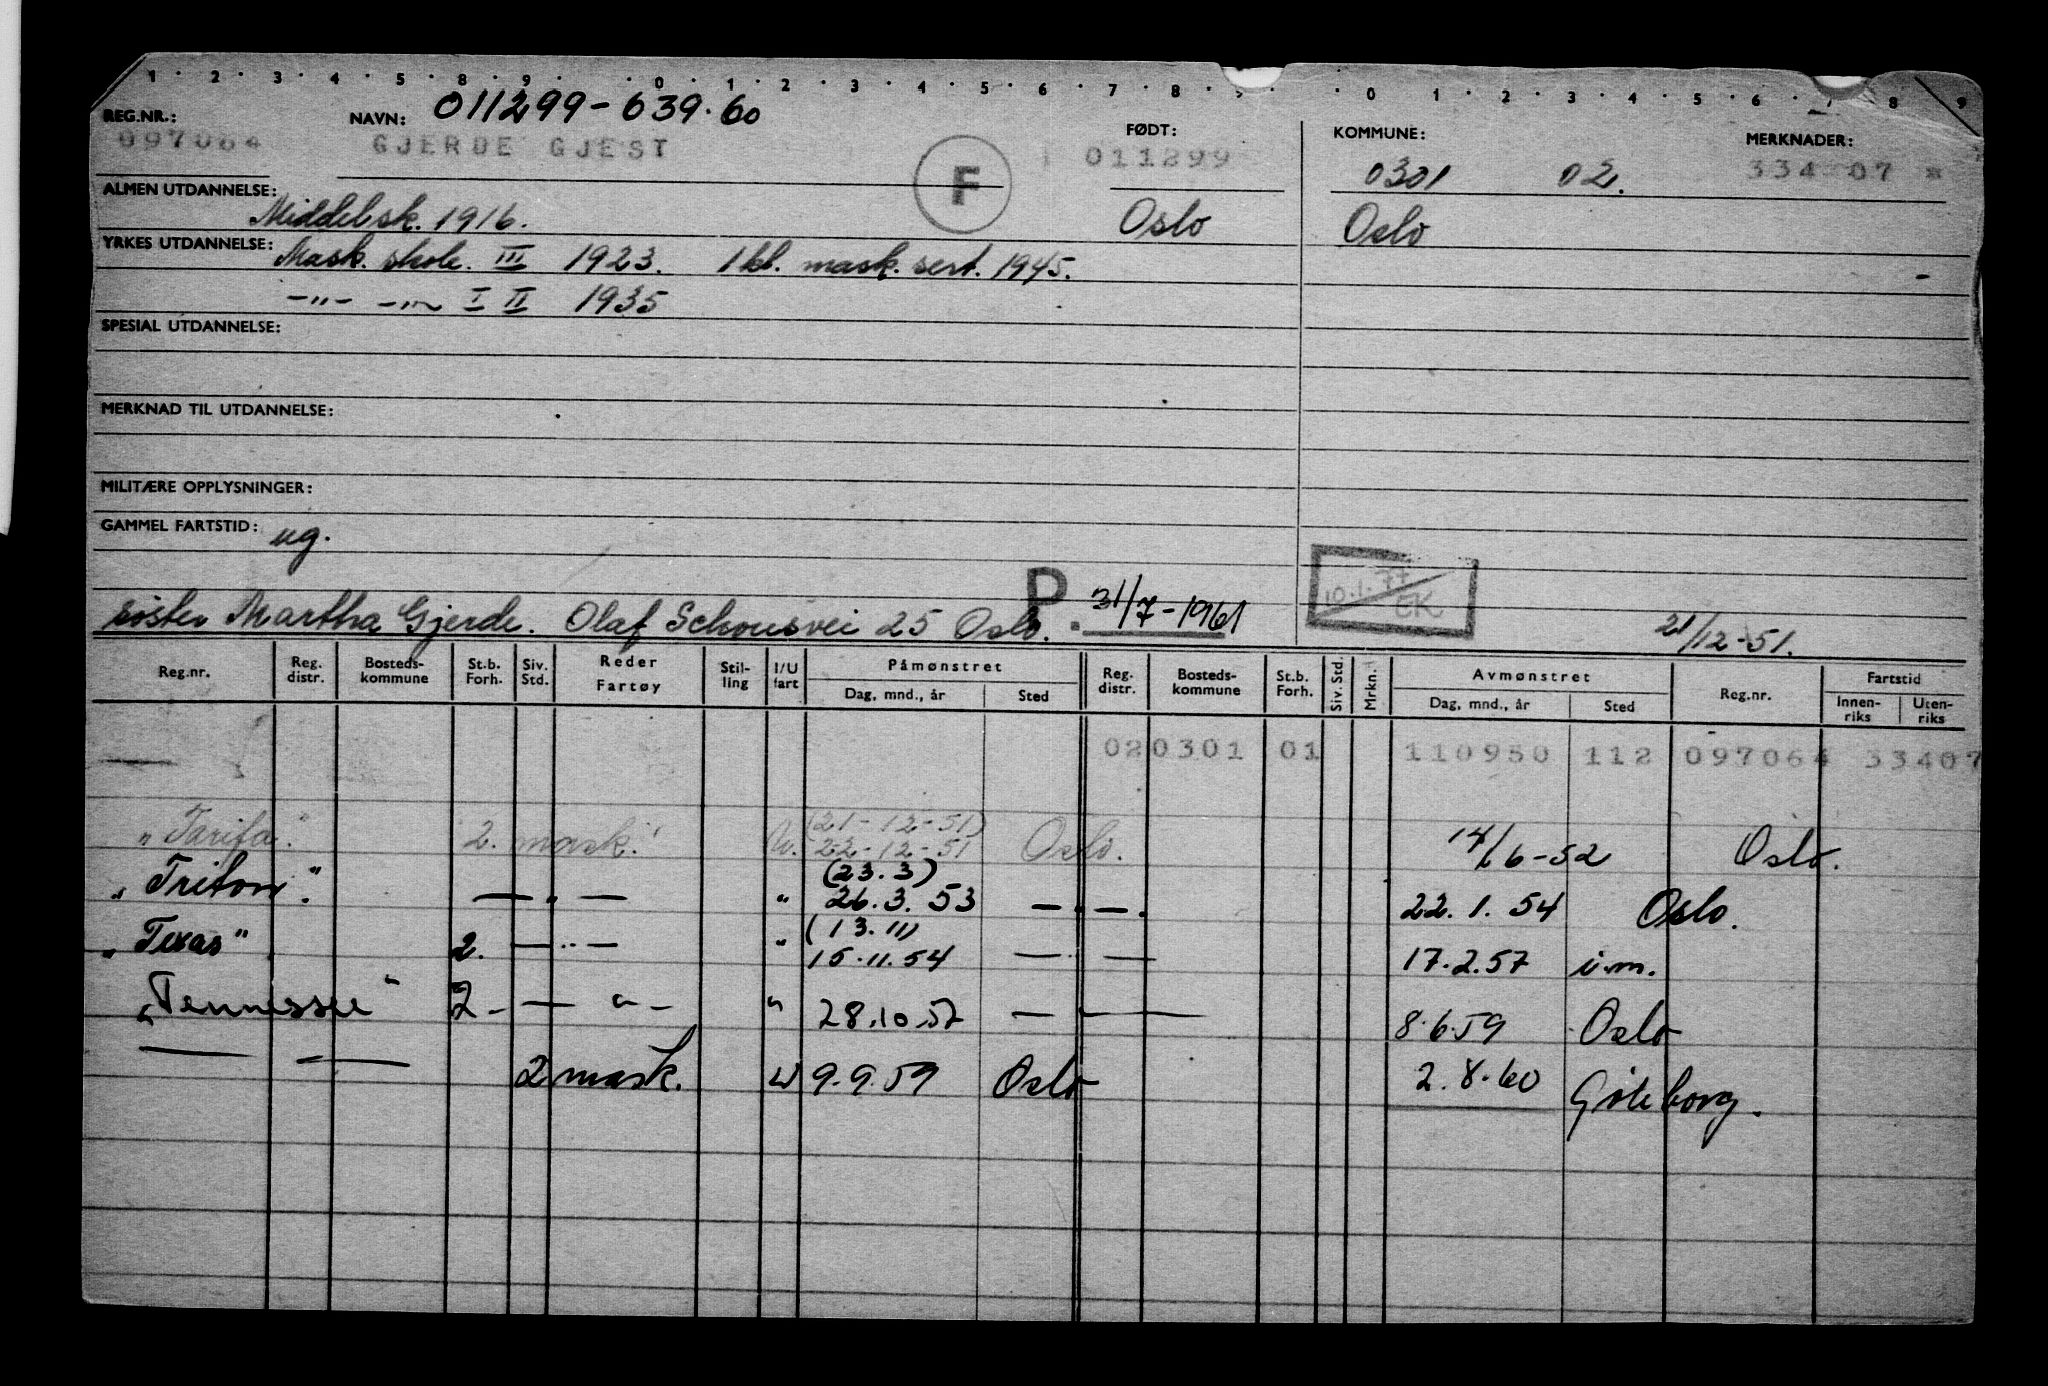 1 · 2 · 3 · 4 · 5 · 8 · 9 · · 0 · 1 · 2 · 3 · 4 · 5 · 6 · 7 · 8 · 9 · · 0 · 1 · 2 · 3 · 4 · 5 · 6 · 7 · 8 · 9
011299-639.60
REG.NR.: NAVN: FØDT: KOMMUNE: MERKNADER:
097064 GJERDE GJEST 011299 0301 02. 334 07
F
ALMEN UTDANNELSE: Middelsk. 1916. Oslo Oslo
YRKES UTDANNELSE: Mask. skole. III 1923. 1 kl. mask. sert. 1945.
-"- -"- I II 1935
SPESIAL UTDANNELSE:
MERKNAD TIL UTDANNELSE:
MILITÆRE OPPLYSNINGER:
GAMMEL FARTSTID: ug.
P. 31/7-1961 10.1.77 EK
søster Martha Gjerde. Olaf Schousvei 25 Oslo. 21/12-51.
Reg.nr. Reg. distr. Bosteds-kommune St.b. Forh. Siv. Std. Reder Fartøy Stil-ling I/U fart Påmønstret Dag, mnd., år Sted Reg. distr. Bosteds-kommune St.b. Forh. Siv. Std. Mrkn. Avmønstret Dag, mnd., år Sted Reg.nr. Fartstid Innen-riks Uten-riks
020301 01 110950 112 097064 33407
"Tarifa". 2. mask. U. (21-12-51) 22-12-51 Oslo. 14/6-52 Oslo.
"Triton". — " — " (23.3) 26.3.53 — " —. 22.1.54 Oslo.
"Texas" 2. — " — " (13.11) 15.11.54 — " — 17.2.57 i.m.
"Tennessee" 2 - — " — " 28.10.57 — — 8.6.59 Oslo
— — 2 mask. U 9.9.59 Oslo 2.8.60 Göteborg.